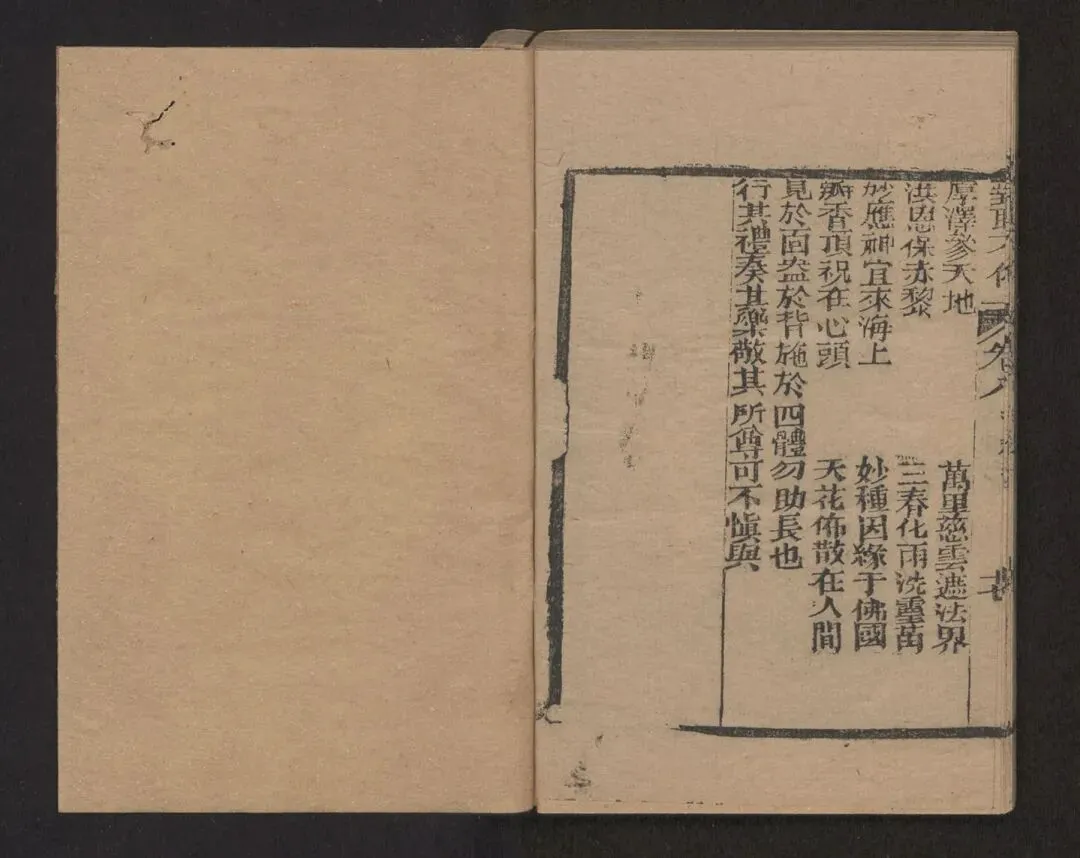 卷八
厚澤參天地 萬里慈雲遮法界
洪恩保赤黎 三春化雨洗靈
妙應神宜來海上 妙種因緣于佛國
瓣香頂祝在心頭 天花佈散在人間
見於面盎於背施於四體勿助長也
行其禮奏其樂敬其所尊可不慎與